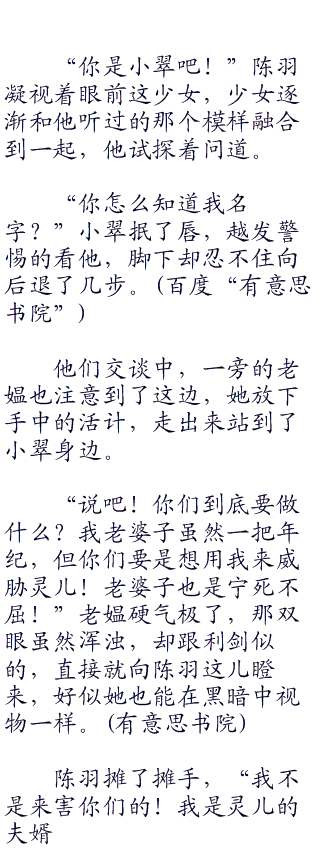 “你是小翠吧！”陈羽
凝视着眼前这少女，少女逐
渐和他听过的那个模样融合
到一起，他试探着问道。
“你怎么知道我名
字？”小翠抿了唇，越发警
惕的看他，脚下却忍不住向
后退了几步。(百度“有意思
书院”)
他们交谈中，一旁的老
媪也注意到了这边，她放下
手中的活计，走出来站到了
小翠身边。
“说吧！你们到底要做
什么？我老婆子虽然一把年
纪，但你们要是想用我来威
胁灵儿！老婆子也是宁死不
屈！”老媪硬气极了，那双
眼虽然浑浊，却跟利剑似
的，直接就向陈羽这儿瞪
来，好似她也能在黑暗中视
物一样。(有意思书院)
陈羽摊了摊手，“我不
是来害你们的！我是灵儿的
夫婿